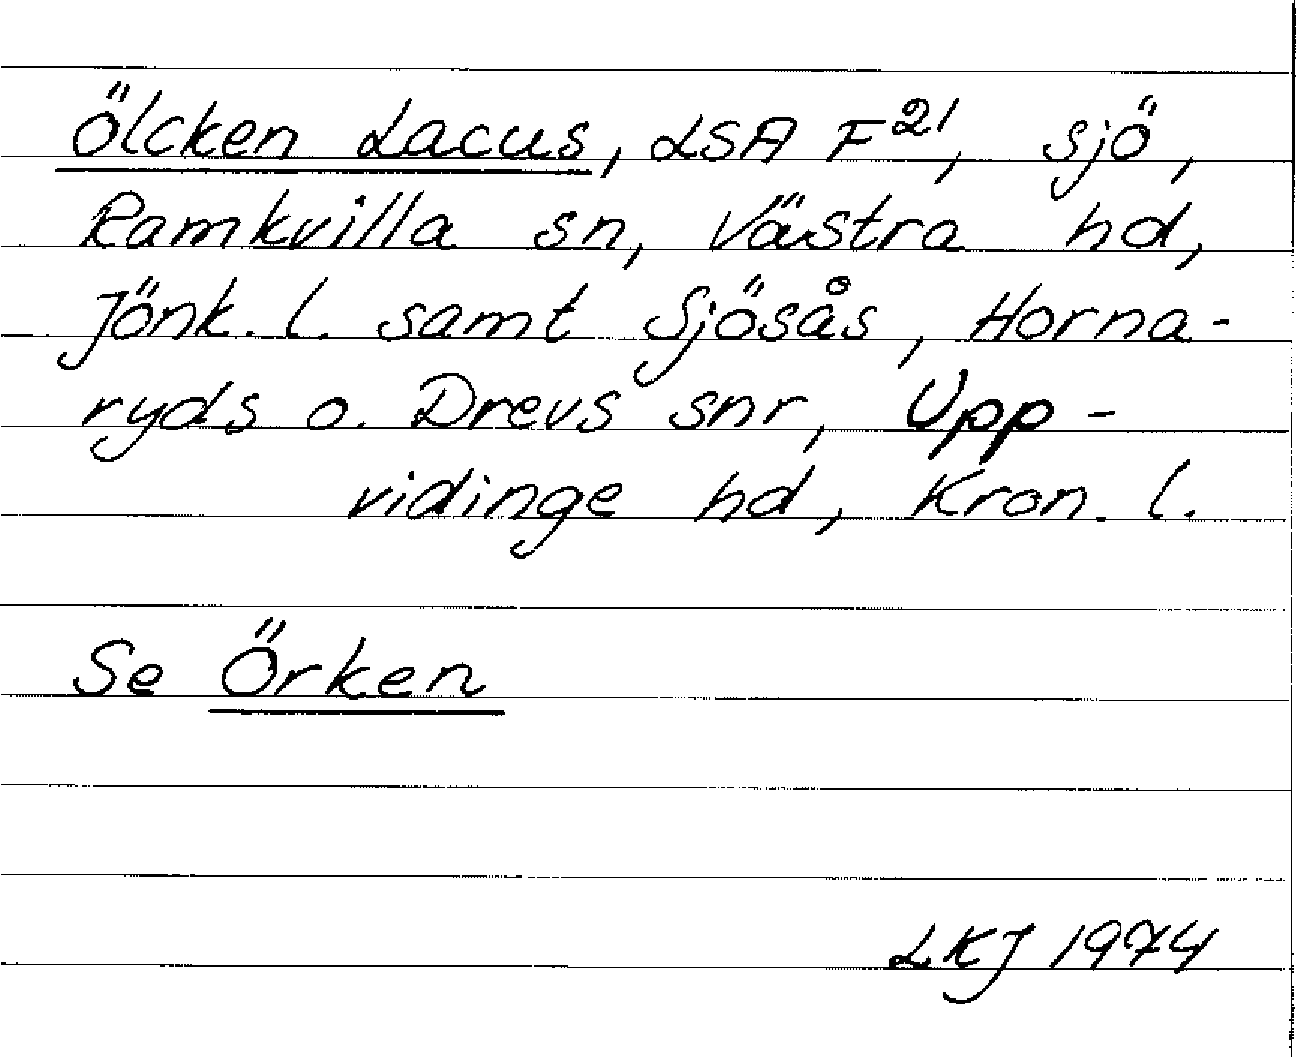 Ölcken Lacus, LSA F²¹, sjö,
Ramkvilla sn, Västra hd,
Jönk. l. samt Sjösås, Horna-
ryds o. Drevs snr, Upp-
vidinge hd, Kron. l.
Se Örken
LKJ 1974